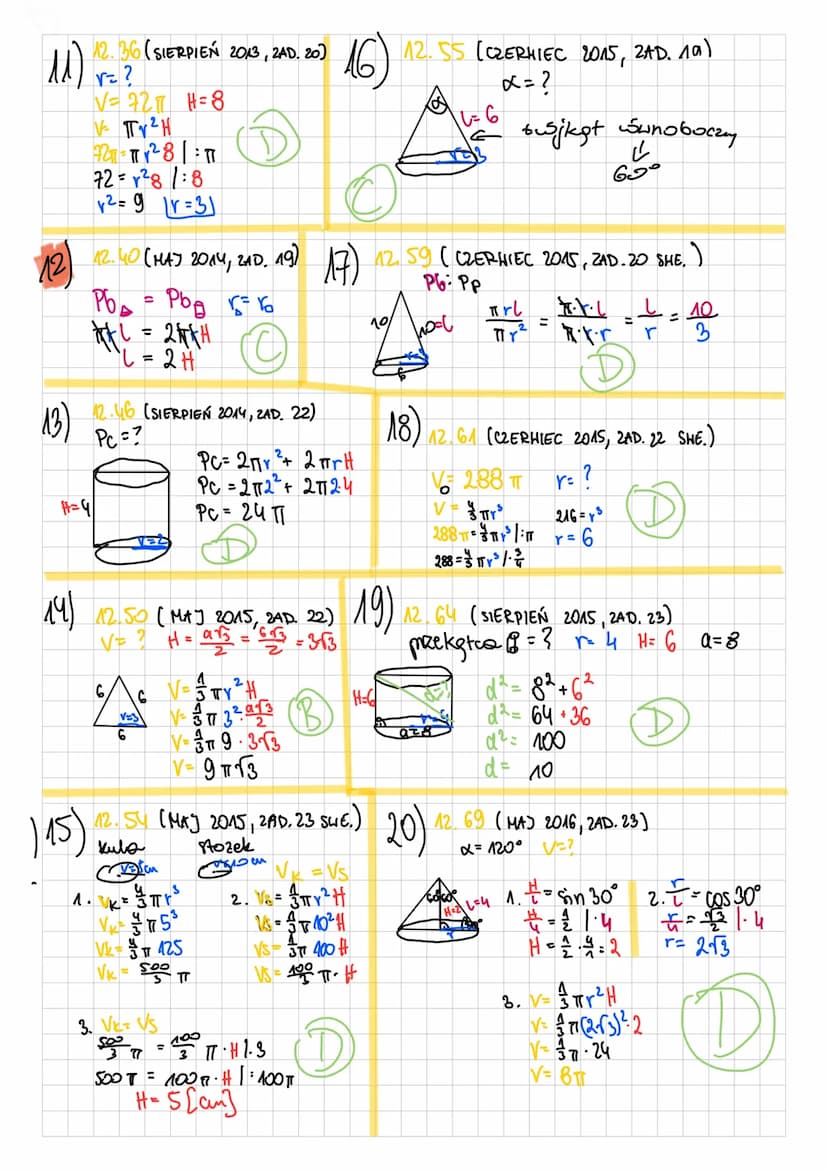 11) 12.36 (SIERPIEŃ 2013, ZAD. 20)
r = ?
V = 72π H = 8
V = πr²H
72π = πr²8 | : π
72 = r²8 | : 8
r² = 9 r = 3
D
16) 12.55 (CZERWIEC 2015, ZAD. 19)
α = ?
α
l = 6
r = 3
trójkąt równoboczny
⇓
60°
C
12) 12.40 (MAJ 2014, ZAD. 19)
Pb△ = Pb r△ = r
πrl = 2πrH
l = 2H
C
17) 12.59 (CZERWIEC 2015, ZAD. 20 SKE.)
Pb : Pp
10
10 = l
r = 3
6
πrl/πr² = π·r·l/π·r·r = l/r = 10/3
D
13) 12.46 (SIERPIEŃ 2014, ZAD. 22)
Pc = ?
H = 4
r = 2
Pc = 2πr² + 2πrH
Pc = 2π2² + 2π2·4
Pc = 24π
D
18) 12.61 (CZERWIEC 2015, ZAD. 22 SKE.)
V = 288π r = ?
V = 4/3πr³
288π = 4/3πr³ | : π
288 = 4/3πr³ | · 3/4
216 = r³
r = 6
D
14) 12.50 (MAJ 2015, ZAD. 22)
V = ? H = a√3/2 = 6√3/2 = 3√3
6
6
r = 3
6
V = 1/3πr²H
V = 1/3π3²·a√3/2
V = 1/3π9·3√3
V = 9π√3
B
19) 12.64 (SIERPIEŃ 2015, ZAD. 23)
przekątna = ? r = 4 H = 6 a = 8
H = 6
d = ?
r = 4
a = 8
d² = 8² + 6²
d² = 64 + 36
d² = 100
d = 10
D
15) 12.54 (MAJ 2015, ZAD. 23 SKE.)
kula stożek
r = 5cm r = 10cm
Vk = Vs
1. Vk = 4/3πr³
Vk = 4/3π5³
Vk = 4/3π125
Vk = 500/3π
2. Vs = 1/3πr²H
Vs = 1/3π10²H
Vs = 1/3π100H
Vs = 100/3π·H
3. Vk = Vs
500/3π = 100/3π·H |·3
500π = 100π·H | : 100π
H = 5 [cm]
D
20) 12.69 (MAJ 2016, ZAD. 23)
α = 120° V = ?
60°60°
H=2
l = 4
30°
r
1. H/l = sin 30°
H/4 = 1/2 | · 4
H = 1/2 · 4/1 = 2
2. r/l = cos 30°
r/4 = √3/2 | · 4
r = 2√3
3. V = 1/3πr²H
V = 1/3π(2√3)²·2
V = 1/3π·24
V = 8π
D